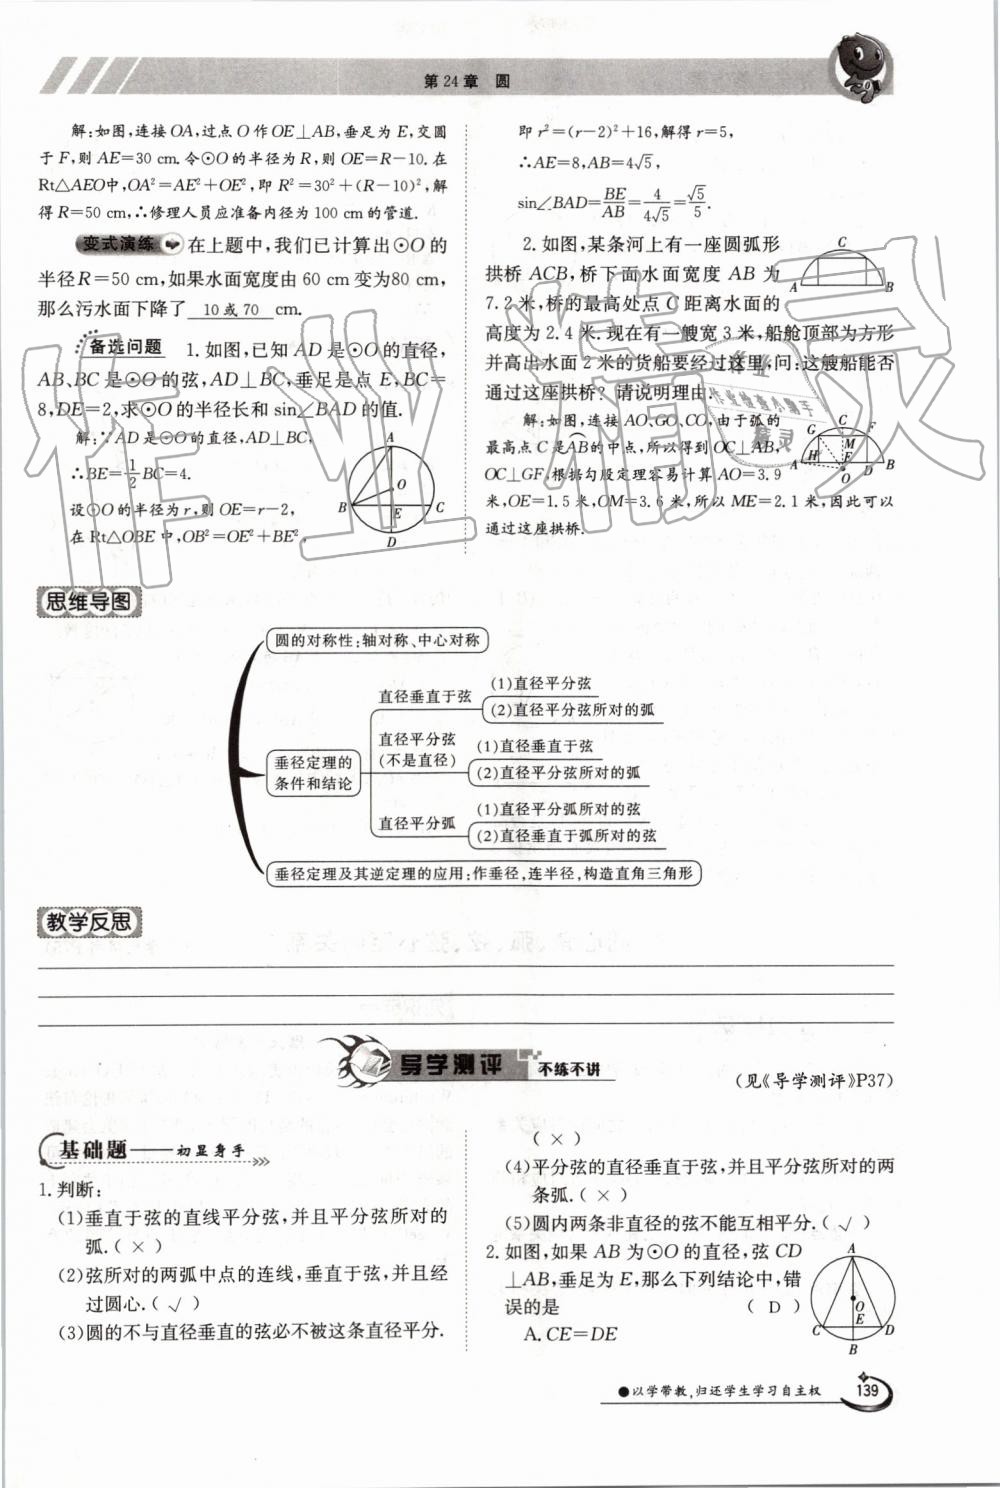 第24章　圆
解:如图,连接OA,过点O作OE⊥AB,垂足为E,交圆
于F,则AE=30 cm.令⊙O的半径为R,则OE=R-10.在
Rt△AEO中,OA²=AE²+OE²,即R²=30²+(R-10)²,解
得R=50 cm,∴修理人员应准备内径为100 cm的管道.
变式演练　在上题中,我们已计算出⊙O的
半径R=50 cm,如果水面宽度由60 cm变为80 cm,
那么污水面下降了 10或70 cm.
备选问题　1.如图,已知AD是⊙O的直径,
AB、BC是⊙O的弦,AD⊥BC,垂足是点E,BC=
8,DE=2,求⊙O的半径长和sin∠BAD的值.
解:∵AD是⊙O的直径,AD⊥BC,
∴BE=1/2BC=4.
设⊙O的半径为r,则OE=r-2,
在Rt△OBE中,OB²=OE²+BE²,
A
O
B
E
C
D
即r²=(r-2)²+16,解得r=5,
∴AE=8,AB=4√5,
sin∠BAD=BE/AB=4/4√5=√5/5.
2.如图,某条河上有一座圆弧形
拱桥ACB,桥下面水面宽度AB为
7.2米,桥的最高处点C距离水面的
高度为2.4米.现在有一艘宽3米,船舱顶部为方形
并高出水面2米的货船要经过这里,问:这艘船能否
通过这座拱桥?请说明理由.
C
A
B
解:如图,连接AO、GO、CO,由于弧的
最高点C是AB的中点,所以得到OC⊥AB,
OC⊥GF,根据勾股定理容易计算AO=3.9
米,OE=1.5米,OM=3.6米,所以ME=2.1米,因此可以
通过这座拱桥.
G
C
F
M
H
E
A
D
B
O
作业精灵
作业检查小帮手
思维导图
圆的对称性:轴对称、中心对称
垂径定理的
条件和结论
直径垂直于弦
(1)直径平分弦
(2)直径平分弦所对的弧
直径平分弦
(不是直径)
(1)直径垂直于弦
(2)直径平分弦所对的弧
直径平分弧
(1)直径平分弧所对的弦
(2)直径垂直于弧所对的弦
垂径定理及其逆定理的应用:作垂径,连半径,构造直角三角形
教学反思
导学测评　不练不讲
(见《导学测评》P37)
基础题——初显身手
1.判断:
(1)垂直于弦的直线平分弦,并且平分弦所对的
弧.( × )
(2)弦所对的两弧中点的连线,垂直于弦,并且经
过圆心.( √ )
(3)圆的不与直径垂直的弦必不被这条直径平分.
( × )
(4)平分弦的直径垂直于弦,并且平分弦所对的两
条弧.( × )
(5)圆内两条非直径的弦不能互相平分.( √ )
2.如图,如果AB为⊙O的直径,弦CD
⊥AB,垂足为E,那么下列结论中,错
误的是　( D )
A.CE=DE
A
O
E
C
D
B
●以学带教,归还学生学习自主权
139